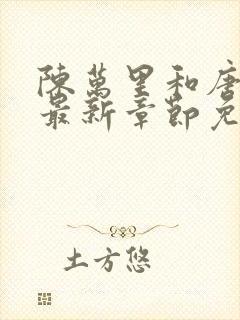 陳萬里和唐
最新章節免
土方悠